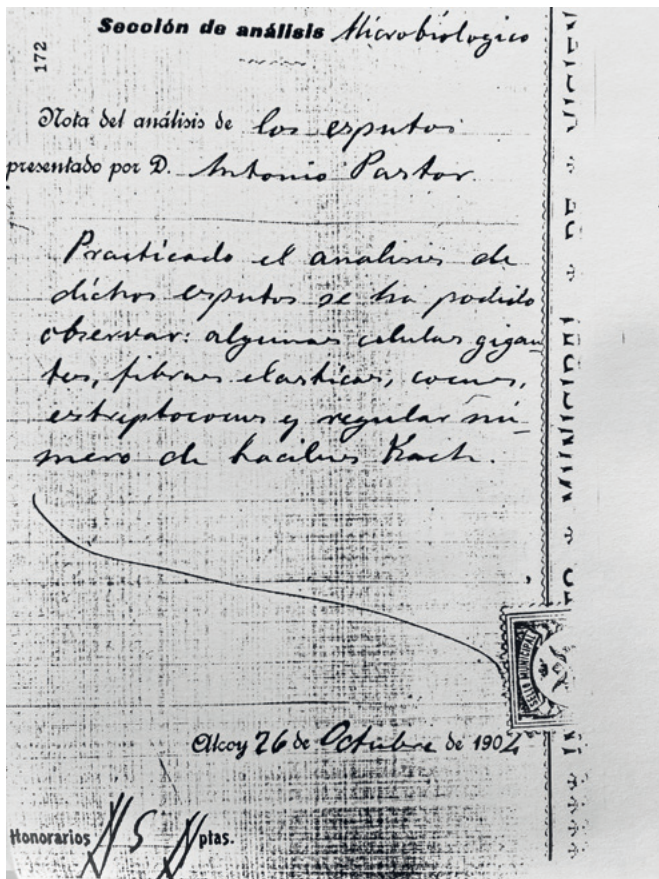 172
Sección de análisis Microbiologico
Nota del análisis de los esputos
presentado por D. Antonio Pastor
Practicado el analisis de
dichos esputos se ha podido
observar: algunas celulas gigan-
tes, fibras elasticas, cocus,
estreptococus y regular nú-
mero de bacilus Koch.
SELLO MUNICIPAL
Alcoy 26 de Octubre de 1904
Honorarios 5 ptas.
MUNICIPAL DE